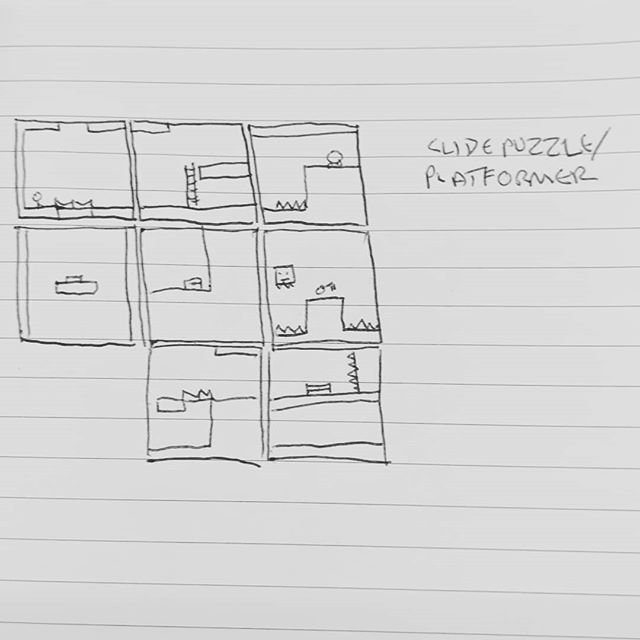 SLIDE PUZZLE/
PLATFORMER